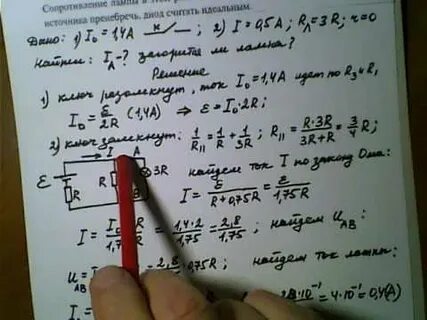 Сопротивление лампы в этом
источника пренебречь, диод считать идеальным.
Дано: 1) I₀ = 1,4A 2) I = 0,5A; Rл = 3R; r = 0
Найти: Iл - ? загорится ли лампа?
Решение
1) ключ разомкнут, ток I₀ = 1,4A идет по R₃ и R₁
I₀ = ε/2R (1,4A) ⇒ ε = I₀·2R;
2) ключ замкнут: 1/R_II = 1/R + 1/3R; R_II = R·3R/3R+R = 3/4 R;
I A
ε R R 3R B найдем ток I по закону Ома:
I = ε/R+0,75R = ε/1,75R
I = R/1,75R = 1,4·2/1,75 = 2,8/1,75; найдем U_AB:
U_AB = 2,8 0,75R; найдем ток лампы:
10⁻¹ = 4·10⁻¹ = 0,4(A)